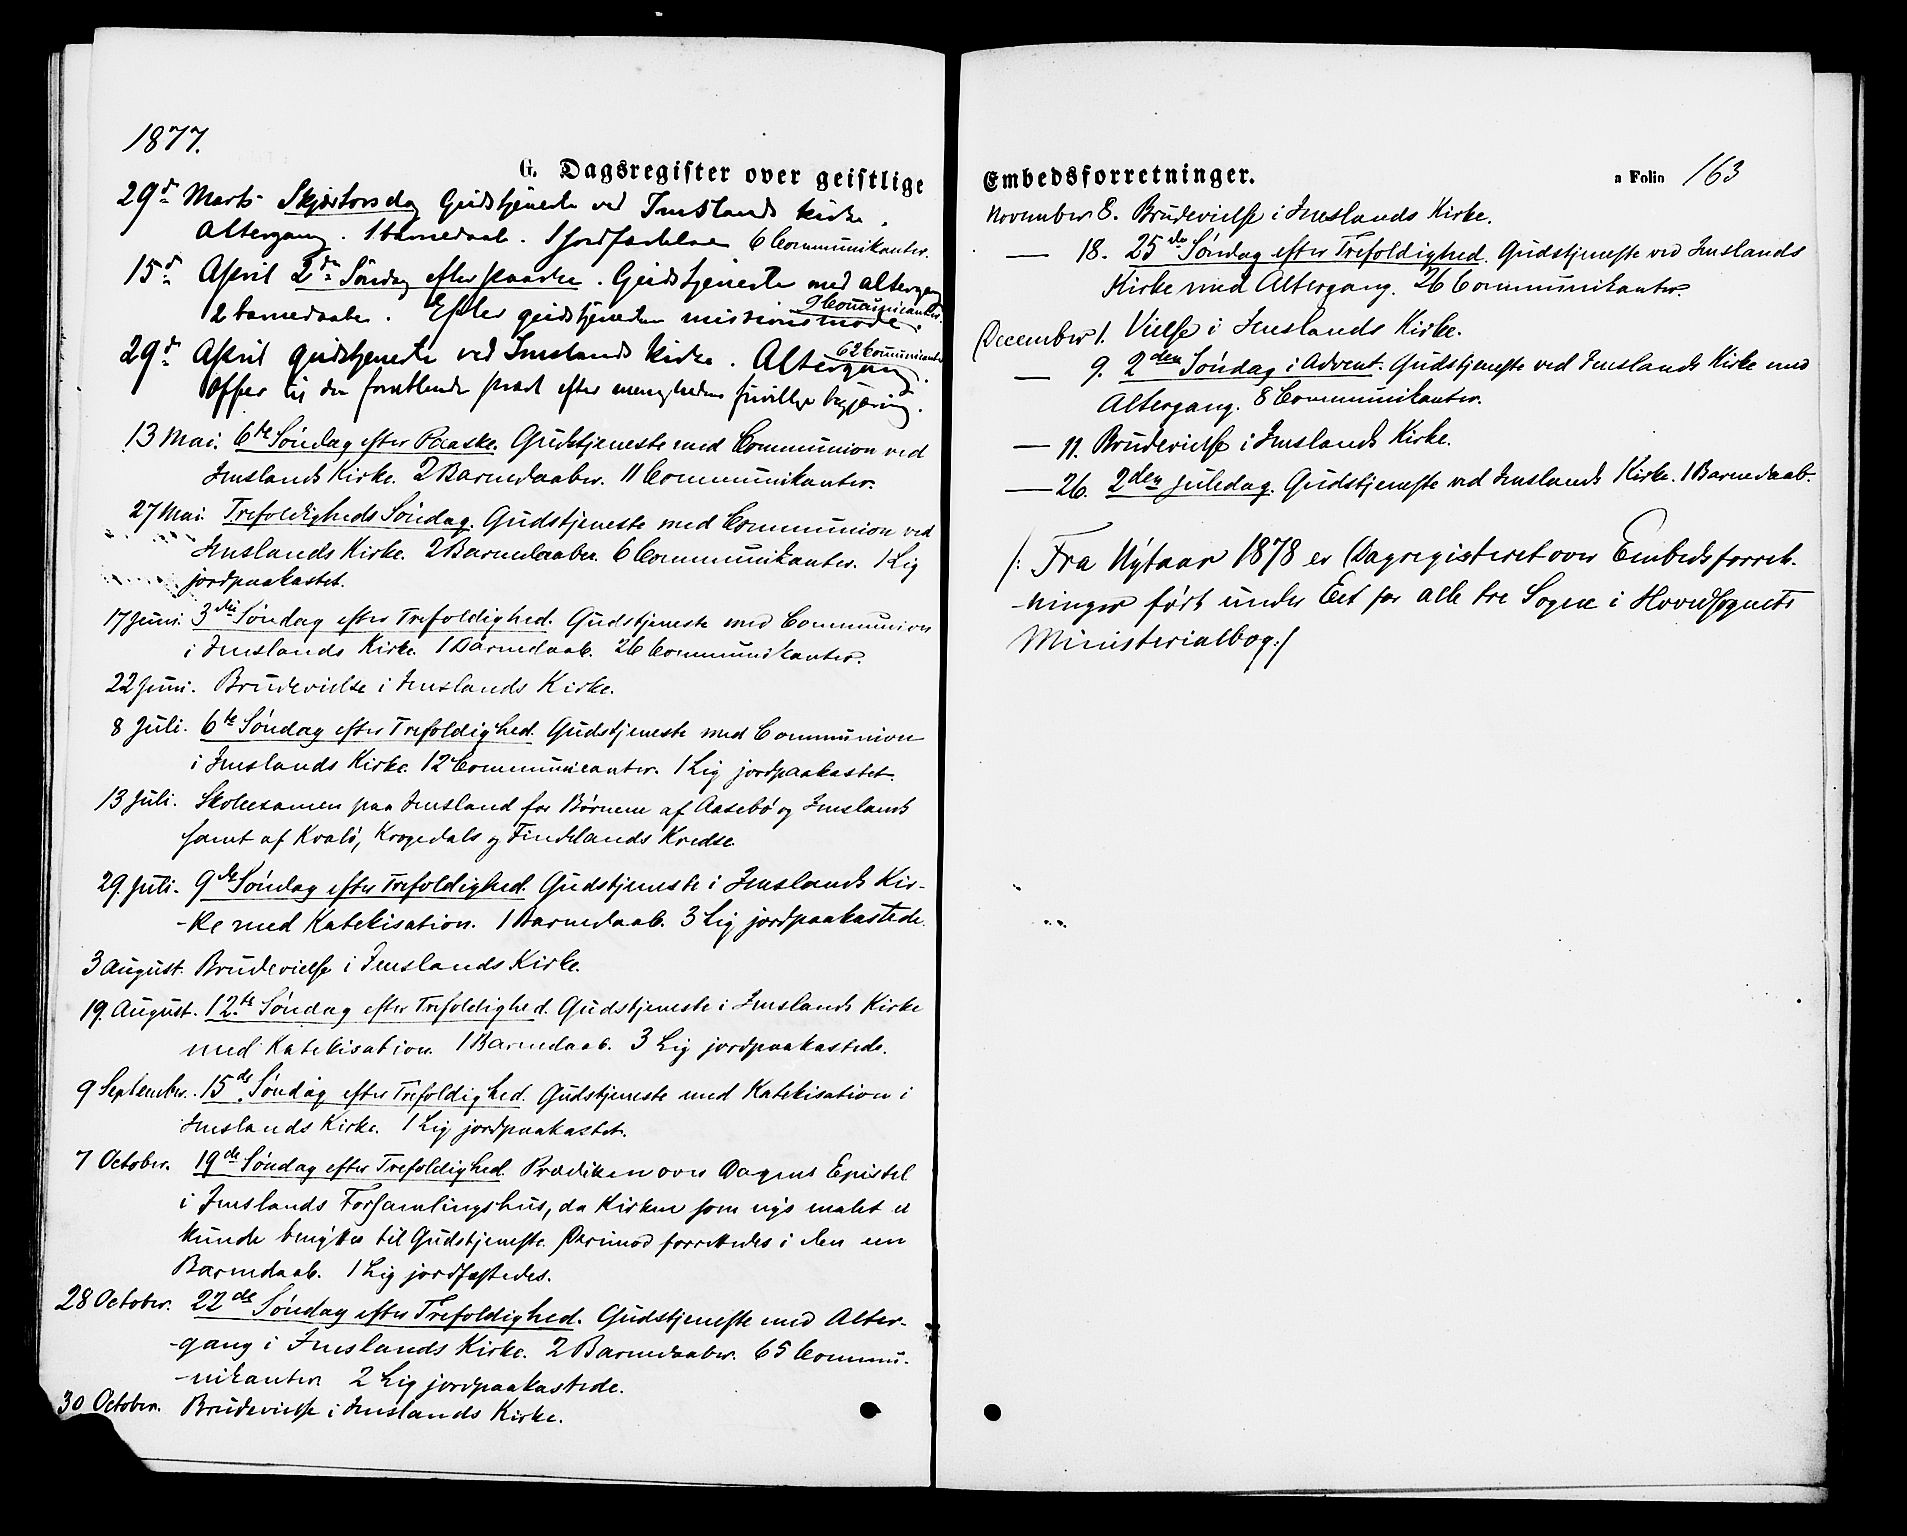 1877.
G. Dagsregister over geistlige
29d Marts Skjærtorsdag Gudstjeneste ved Imslands kirke.
Altergang. 1 barnedaab. 1 jordfæstelse 6 Communikanter.
15d April 2den Søndag efter paaske. Gudstjeneste med altergang
2 barnedaabe. Efter gudstjenesten missionsmøde. 9 Communicanter.
29d April gudstjeneste ved Imslands kirke. Altergang. 62 Communicanter
Offer til den fratrædende præst efter menighedens frivillige begjæring.
13 Mai. 6te Søndag efter Paaske. Gudstjeneste med Communion ved
Imslands Kirke. 2 Barnedaaber. 11 Communikanter.
27 Mai. Trefoldigheds Søndag. Gudstjeneste med Communion ved
Imslands Kirke. 2 Barnedaaber. 6 Communikanter. 1 Lig
jordpaakastet.
17 Juni. 3die Søndag efter Trefoldighed. Gudstjeneste med Communion
i Imslands Kirke. 1 Barnedaab. 26 Communikanter.
22 Juni. Brudevielse i Imslands Kirke.
8 Juli. 6te Søndag efter Trefoldighed. Gudstjeneste med Communion
i Imslands Kirke. 12 Communicanter. 1 Lig jordpaakastet.
13 Juli. Skoleexamen paa Imsland for Børnene af Aasebø og Imslands
samt af Kvalø, Krogedals og Findelands Kredse.
29. Juli. 9de Søndag efter Trefoldighed. Gudstjeneste i Imslands Kir-
-ke med Katekisation. 1 Barnedaab. 3 Lig jordpaakastede.
3 August. Brudevielse i Imslands Kirke.
19. August. 12.te Søndag efter Trefoldighed. Gudstjeneste i Imslands Kirke
med Katekisation. 1 Barnedaab. 3 Lig jordpaakastede.
9 September. 15de Søndag efter Trefoldighed. Gudstjeneste med Katekisation i
Imslands Kirke. 1 Lig jordpaakastet.
7 October. 19de Søndag efter Trefoldighed. Prædiken over Dagens Epistel
i Imslands Forsamlingshus, da Kirken som nys malet ei
kunde benyttes til Gudstjeneste. Derimod forrettedes i den en
Barnedaab. 1 Lig jordfæstedes.
28 October. 22de Søndag efter Trefoldighed. Gudstjeneste med Alter-
-gang i Imslands Kirke. 2 Barnedaaber. 65 Commu-
-nikanter. 2 Lig jordpaakastede.
30 October. Brudevielse i Imslands Kirke.
Embedsforretninger.
a Folio 163
November 8. Brudevielse i Imslands Kirke.
— 18. 25de Søndag efter Trefoldighed. Gudstjeneste ved Imslands
Kirke med Altergang. 26 Communikanter.
December 1. Vielse i Imslands Kirke.
— 9. 2den Søndag i Advent. Gudstjeneste ved Imslands Kirke med
Altergang. 8 Communikanter.
— 11. Brudevielse i Imslands Kirke.
— 26. 2den Juledag. Gudstjeneste ved Imslands Kirke. 1 Barnedaab.
/: Fra Nytaar 1878 er Dagregisteret over Embedsforret-
-ninger ført under Eet for alle tre Sogne i Hovedsognets
Ministerialbog./